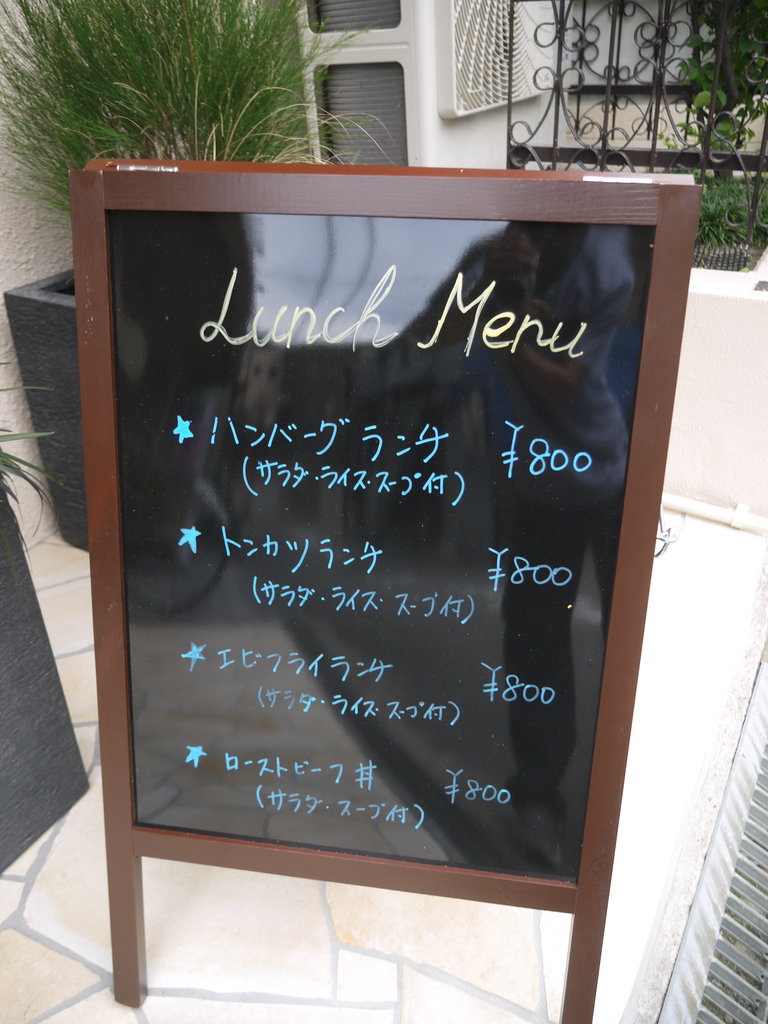 Lunch Menu
★ ハンバーグランチ ¥800
(サラダ・ライス・スープ付)
★ トンカツランチ ¥800
(サラダ・ライス・スープ付)
★ エビフライランチ ¥800
(サラダ・ライス・スープ付)
★ ローストビーフ丼 ¥800
(サラダ・スープ付)